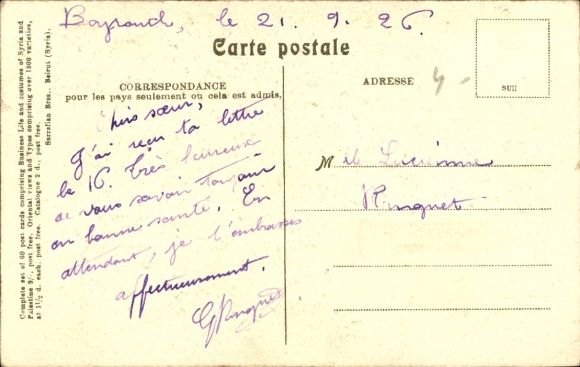 Beyrouth, le 21. 9. 26.
Carte postale
CORRESPONDANCE
pour les pays seulement ou cela est admis,
ADRESSE
Chère sœur,
J'ai reçu ta lettre
le 16. Très heureux
de vous savoir toujours
en bonne santé. En
attendant, je t'embrasse
affectueusement.
Mlle
Complete set of 60 post cards comprising Business Life and costumes of Syria and
Palestine 9/. post free. Oriental views and Types comprising over 1500 varieties,
at 1½ d. each. post free. Catalogue 2 d., post free.
Sarrafian Bros., Beirut (Syria).